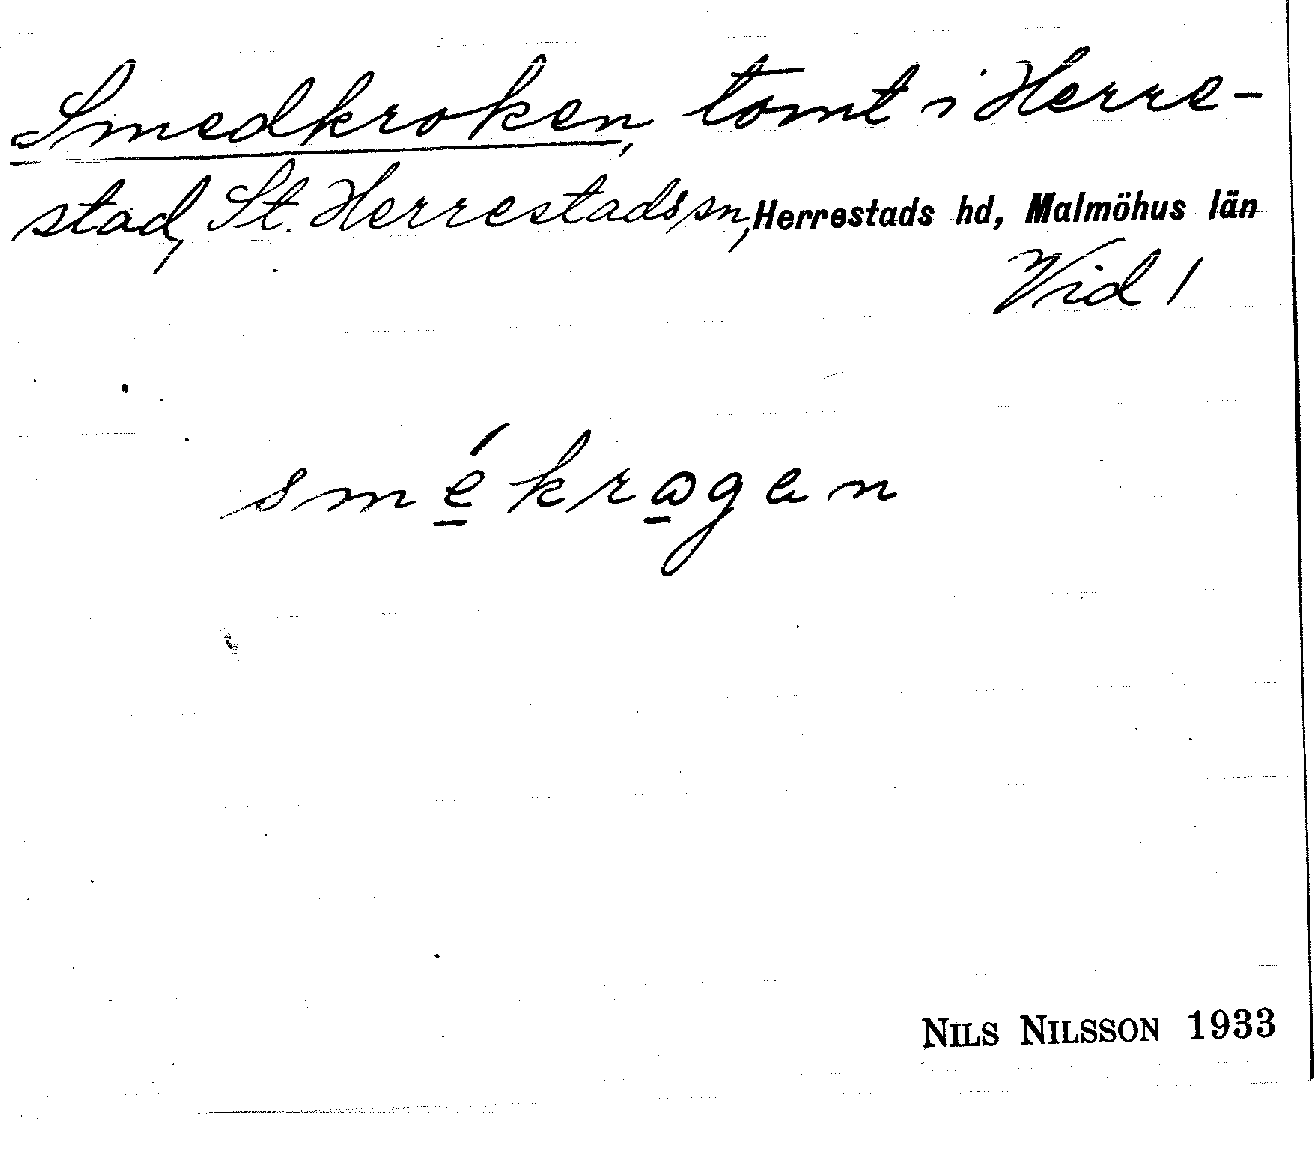 Smedkroken, tomt i Herre-
stad, St. Herrestads sn, Herrestads hd, Malmöhus län
Vid 1
smé̲kro̲gen
NILS NILSSON 1933